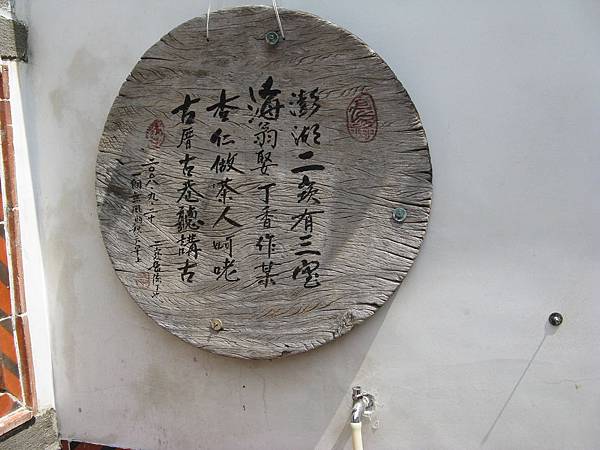 澎湖二崁有三宝
海翁娶丁香作某
杏仁做茶人呵咾
古厝古卷聽講古
二〇〇八九二十